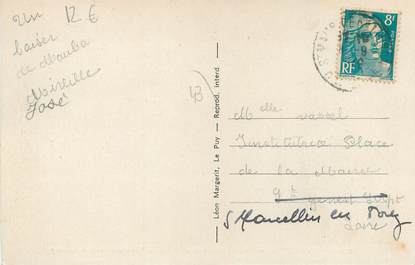 Un
12 €
baiser
de Mauba
Mireille
José
43
Léon Margerit, Le Puy — Reprod. interd.
8F
RF
Melle Vassel
Institutrice Place
de la Mairie
St Genest
St Marcellin en Forez
Loire